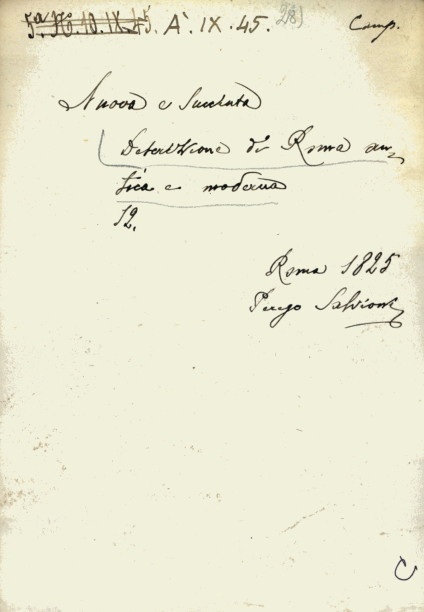 5ª. N6. 10. IX. 45. A'. IX. 45. 28) Comp.
Nuova e Succinta
Descrizione di Roma an-
tica e moderna
12.
Roma 1825
Perego Salvioni
C